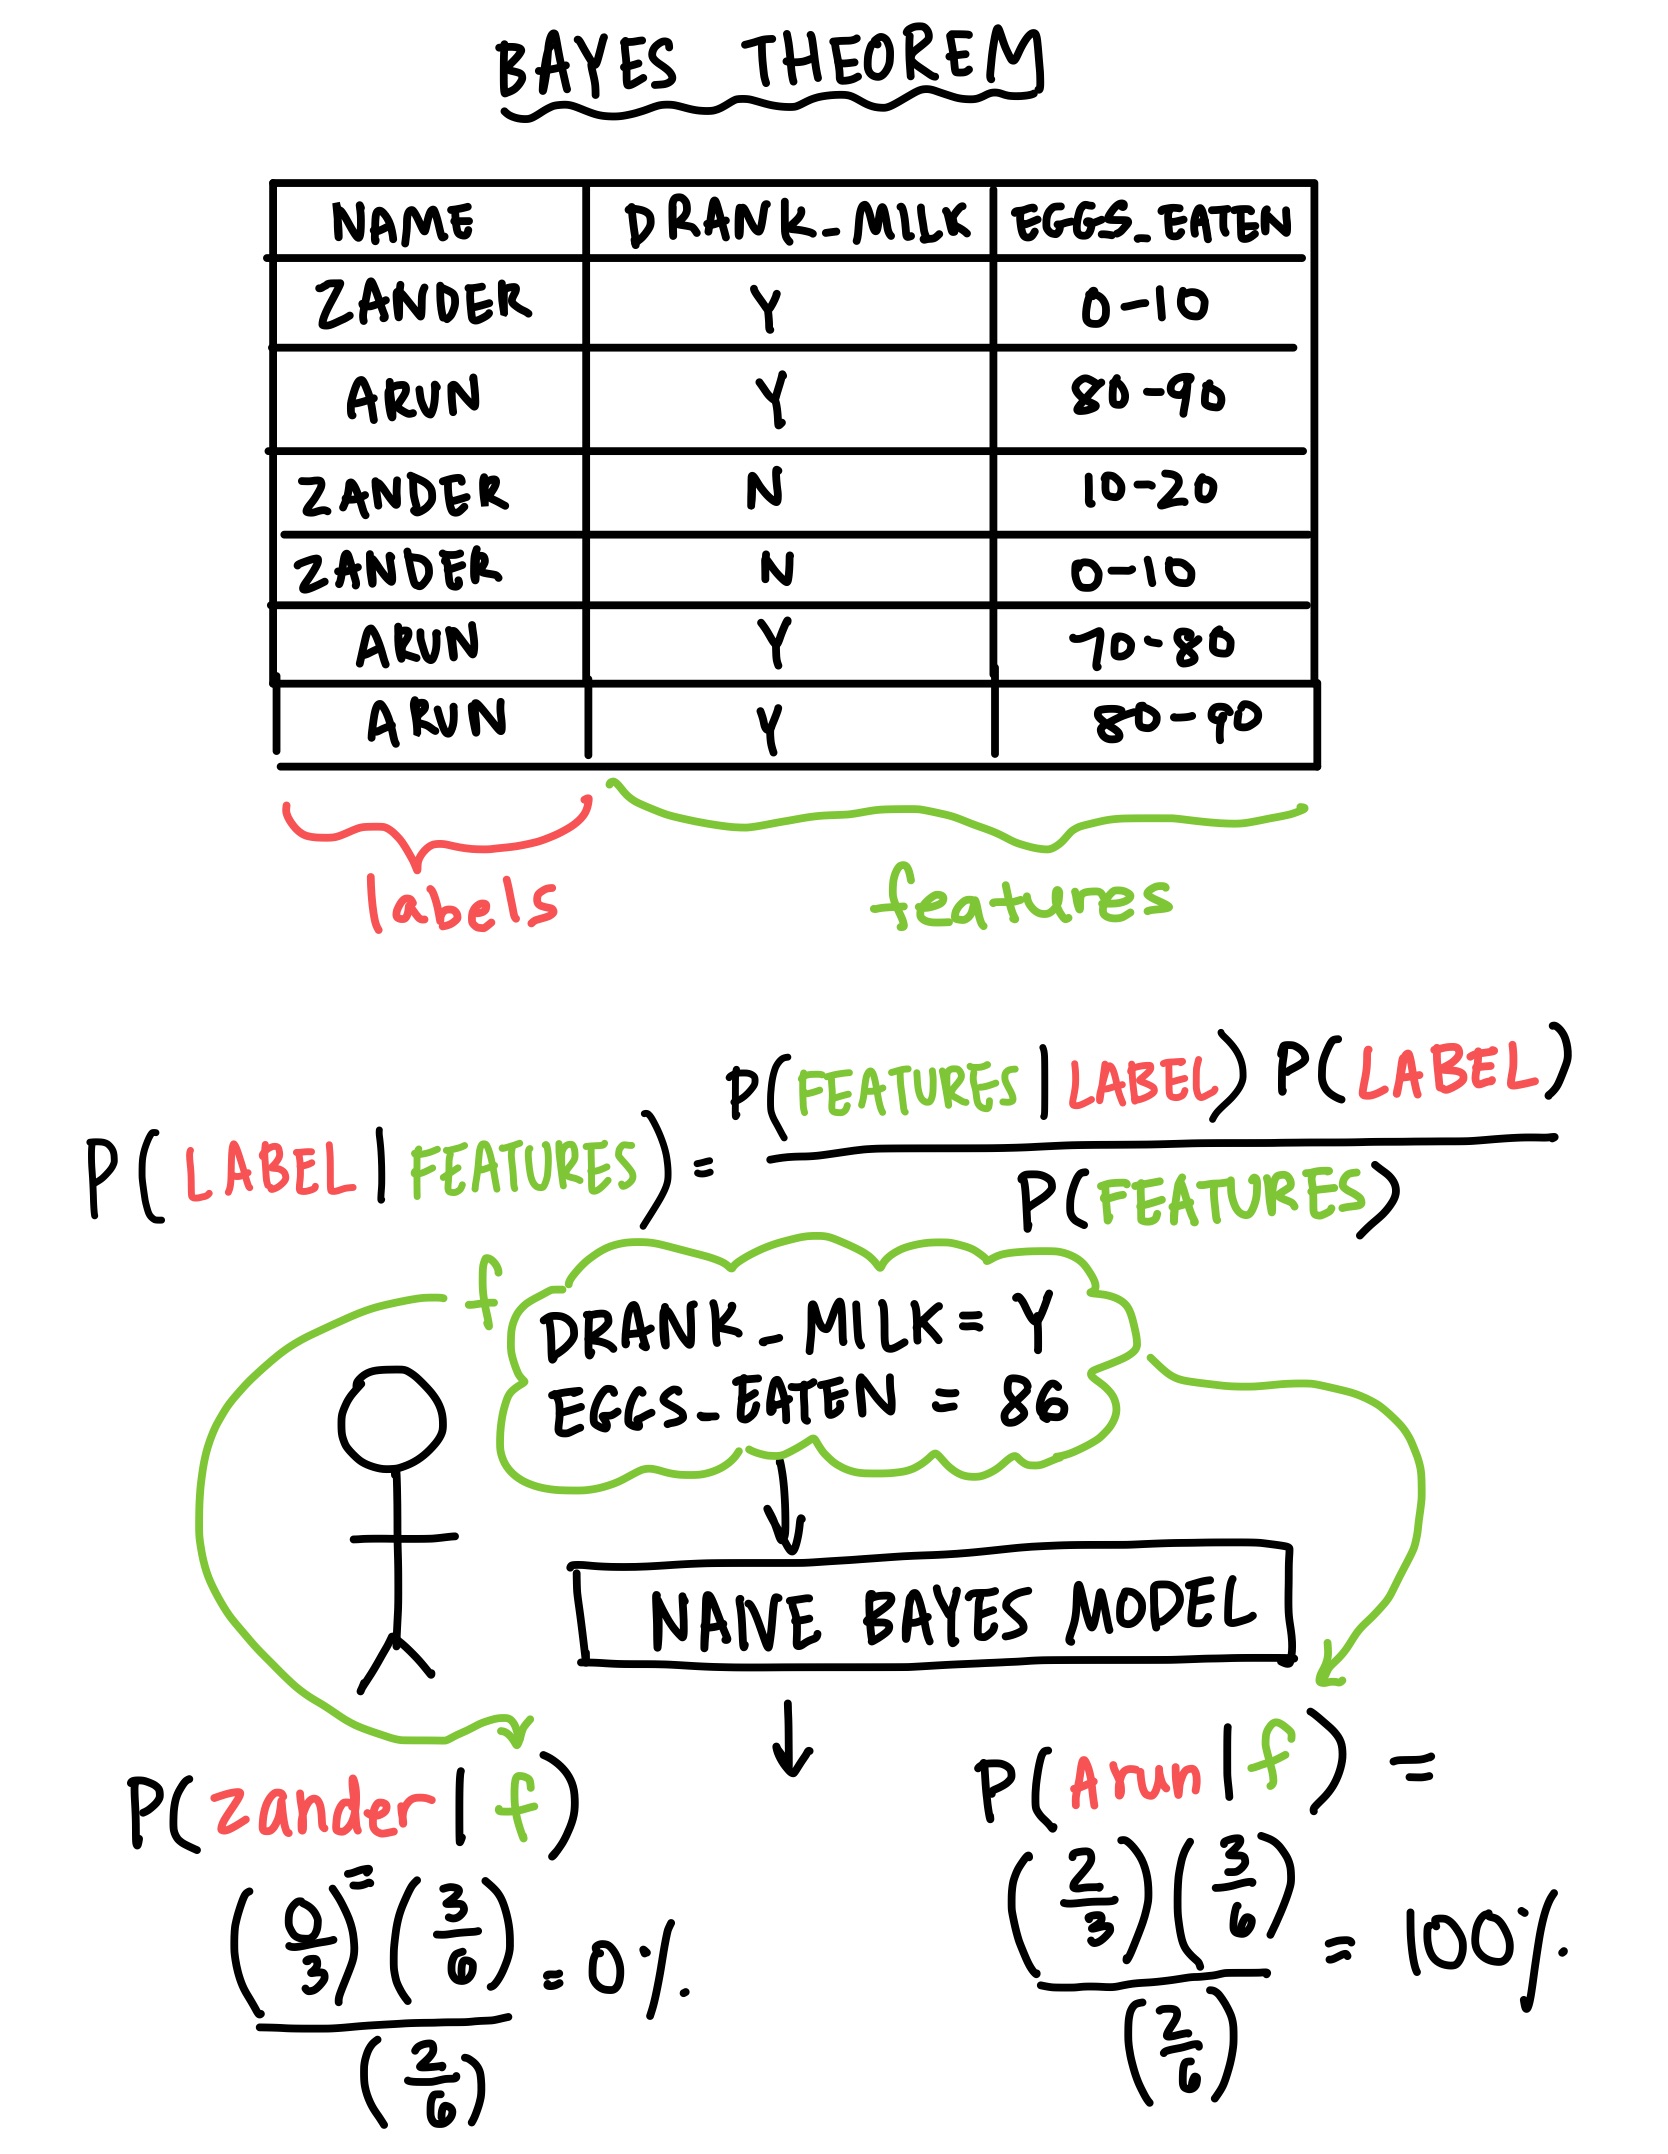 BAYES THEOREM
NAME DRANK_MILK EGGS_EATEN
ZANDER Y 0-10
ARUN Y 80-90
ZANDER N 10-20
ZANDER N 0-10
ARUN Y 70-80
ARUN Y 80-90
labels features
P(LABEL|FEATURES) = P(FEATURES|LABEL) P(LABEL)
P(FEATURES)
f
DRANK_MILK = Y
EGGS_EATEN = 86
NAIVE BAYES MODEL
P(zander|f)
=
(0/3)(3/6)
(2/6)
= 0%
P(Arun|f) =
(2/3)(3/6)
(2/6)
= 100%